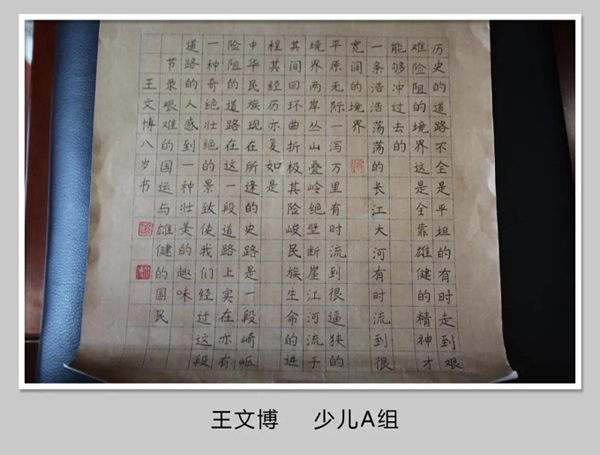 历史的道路不全是平坦的有时走到艰
难险阻的境界这是全靠雄健的精神才
能够冲过去的
一条浩浩荡荡的长江大河有时流到很
宽阔的境界
平原无际一泻万里有时流到很逼狭的
境界两岸丛山叠岭绝壁断崖江河流于
其间回环曲折极其险峻民族生命的进
程其经历亦复如是
中华民族现在所逢的史路是一段崎岖
险阻的道路在这一段道路上实在亦有
一种奇绝壮绝的景致使我们经过这段
道路的人感到一种壮美的趣味
节录艰难的国运与雄健的国民
王文博八岁书
王文博 少儿A组